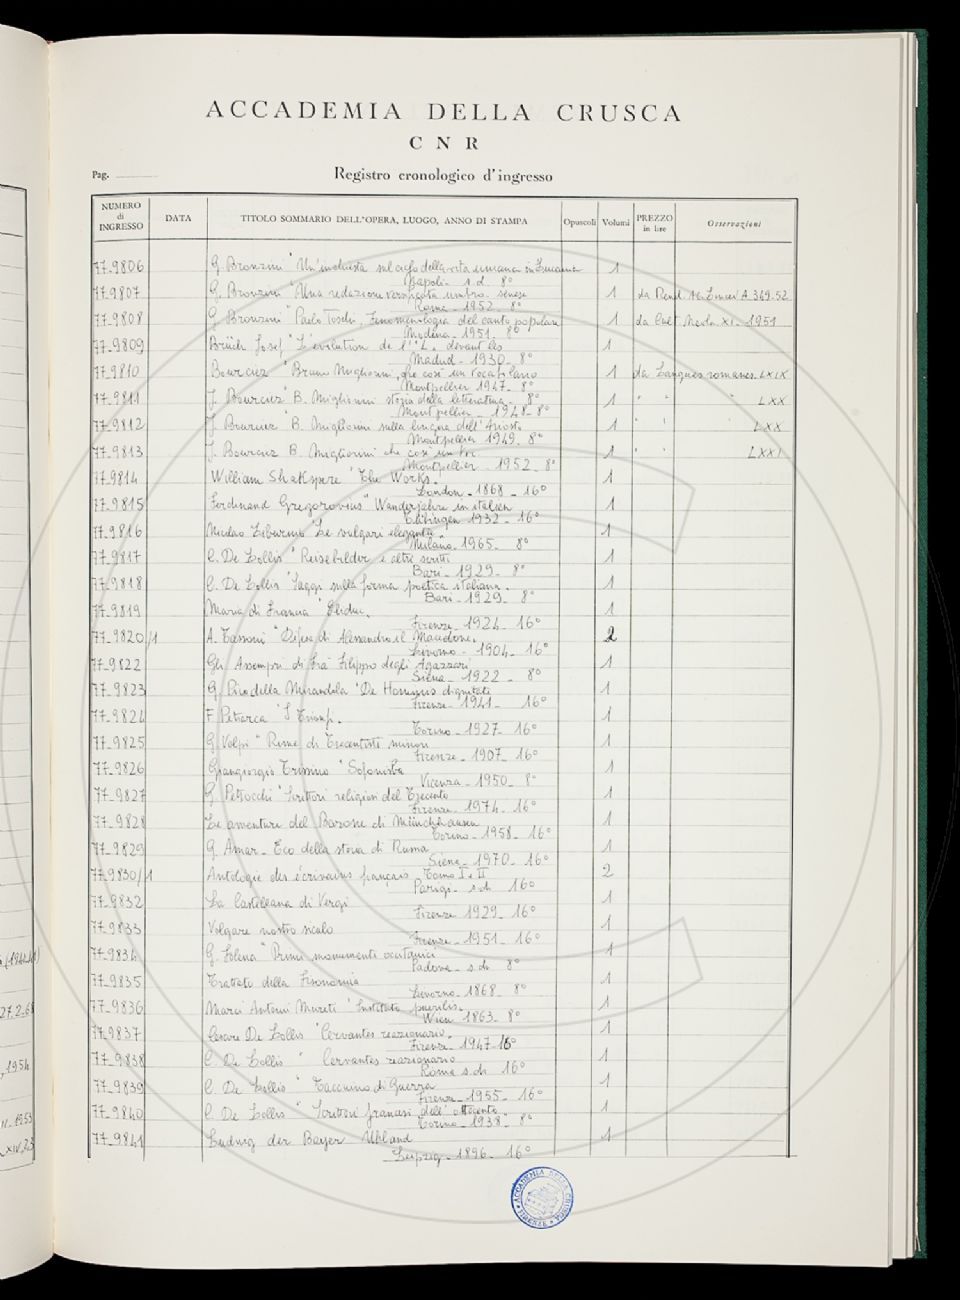 ACCADEMIA DELLA CRUSCA
C N R
Pag.
Registro cronologico d'ingresso
NUMERO di INGRESSO DATA TITOLO SOMMARIO DELL'OPERA, LUOGO, ANNO DI STAMPA Opuscoli Volumi PREZZO in lire Osservazioni
77_9806 G. Bronzini "Un'inchiesta sul ciclo della vita umana in Lucania 1
Napoli - s.d. 8°
77_9807 G. Bronzini "Una redazione versificata umbro-senese 1 da Rend. Acc. Lincei A. 349.52
Roma - 1952 - 8°
77_9808 G. Bronzini "Paolo Toschi, Fenomenologia del canto popolare 1 da Cult. Neola. XI - 1951
Modena - 1951 - 8°
77_9809 Brüch Josef "L'évolution de l' "L" devant les 1
Madrid - 1930 - 8°
77_9810 Bourciez "Bruno Migliorini, che cos'è un vocabolario 1 da Langues romanes LXIX
Montpellier 1947 - 8°
77_9811 J. Bourciez "B. Migliorini storia della letteratura 1 " " " LXX
Montpellier - 1948 - 8°
77_9812 J. Bourciez "B. Migliorini sulla lingua dell'Ariosto 1 " " LXX
Montpellier 1949 - 8°
77_9813 J. Bourciez B. Migliorini che cos'è un voc. 1 " " LXXI
Montpellier - 1952 - 8°
77_9814 William Shakspere "The Works. 1
London - 1868 - 16°
77_9815 Ferdinand Gregorovius "Wanderjahre in italien 1
Tübingen 1932 - 16°
77_9816 Nicolao Liburnio "Le vulgari elegantie" 1
Milano - 1965 - 8°
77_9817 C. De Lollis "Reisebilder e altri scritti 1
Bari - 1929 - 8°
77_9818 C. De Lollis "Saggi sulla forma poetica italiana. 1
Bari - 1929 - 8°
77_9819 Maria di Francia "Eliduc. 1
Firenze - 1924 - 16°
77_9820/1 A. Tassoni "Difesa di Alessandro il Macedone. 2
Livorno - 1904 - 16°
77_9822 Gli Assempri di fra Filippo degli Agazzari 1
Siena - 1922 - 8°
77_9823 G. Pico della Mirandola "De Hominis dignitate 1
Firenze - 1941 - 16°
77_9824 F. Petrarca "I Trionfi. 1
Torino - 1927 - 16°
77_9825 G. Volpi "Rime di Trecentisti minori 1
Firenze - 1907 - 16°
77_9826 Giangiorgio Trissino "Sofonisba 1
Vicenza - 1950 - 8°
77_9827 G. Petrocchi "Scrittori religiosi del Trecento 1
Firenze - 1974 - 16°
77_9828 Le avventure del Barone di Münchhausen 1
Torino - 1958 - 16°
77_9829 G. Amar - Eco della storia di Roma 1
Siena - 1970 - 16°
77_9830/1 Antologie des écrivains français Tomo I e II 2
Parigi - s.d. 16°
77_9832 La Castellana di Vergi 1
Firenze 1929 - 16°
77_9833 Volgare nostro siculo 1
Firenze - 1951 - 16°
77_9834 G. Folena "Primi monumenti 1
Padova - s.d. 8°
77_9835 Trattato della Fisonomia 1
Livorno - 1868 - 8°
77_9836 Marci Antonii Mureti "Institutio puerilis. 1
Wien 1863 - 8°
77_9837 Cesare De Lollis "Cervantes reazionario. 1
Firenze - 1947 - 16°
77_9838 C. De Lollis " Cervantes reazionario 1
Roma s.d. 16°
77_9839 C. De Lollis "Taccuino di Guerra 1
Firenze - 1955 - 16°
77_9840 C. De Lollis "Scrittori francesi dell'ottocento. 1
Torino - 1938 - 8°
77_9841 Ludwig der Bayer Uhland 1
Leipzig - 1896 - 16°
ACCADEMIA DELLA CRUSCA
FIRENZE